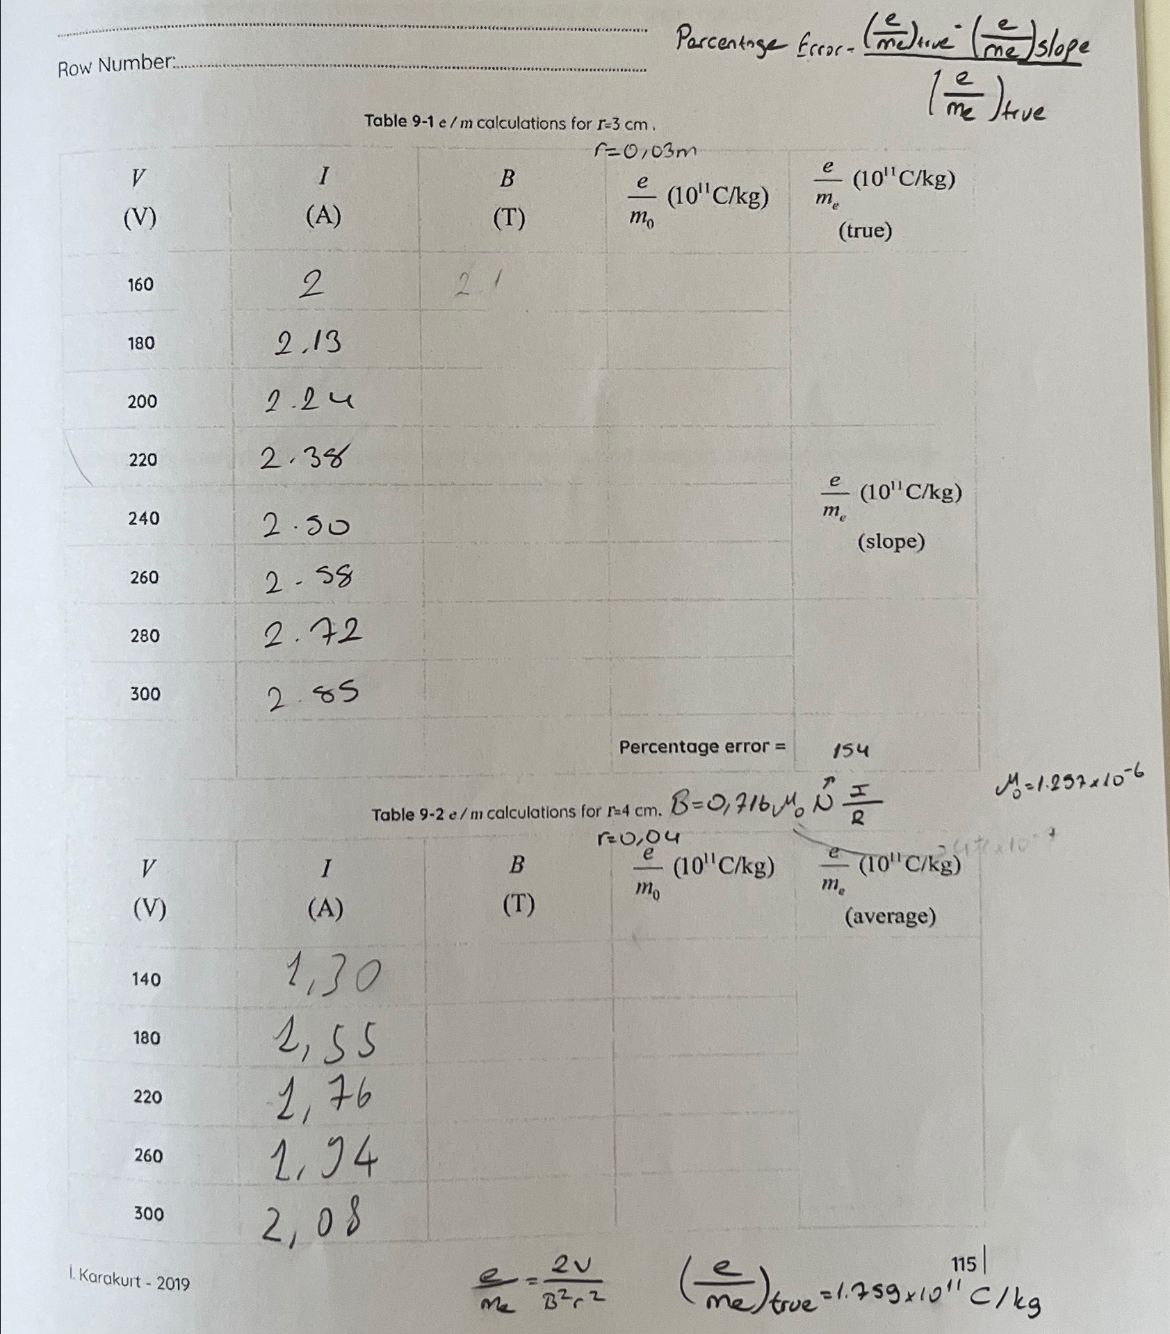 Percentage Error - (e/me)true - (e/me)slope / (e/me)true
Row Number:
Table 9-1 e / m calculations for r=3 cm.
r=0,03m
V (V) I (A) B (T) e/m₀ (10¹¹C/kg) e/mₑ (10¹¹C/kg) (true)
160 2 2.1
180 2.13
200 2.24
220 2.38
240 2.50 e/mₑ (10¹¹C/kg) (slope)
260 2.58
280 2.72
300 2.85
Percentage error = 154
μ₀=1.257x10⁻⁶
Table 9-2 e / m calculations for r=4 cm. B=0,716 μ₀ N I/R
r=0,04
V (V) I (A) B (T) e/m₀ (10¹¹C/kg) e/mₑ (10¹¹C/kg) (average)
140 1,30
180 1,55
220 1,76
260 1,94
300 2,08
115
I. Karakurt - 2019
e/me = 2V/B²r² (e/me)true = 1.759x10¹¹ C/kg